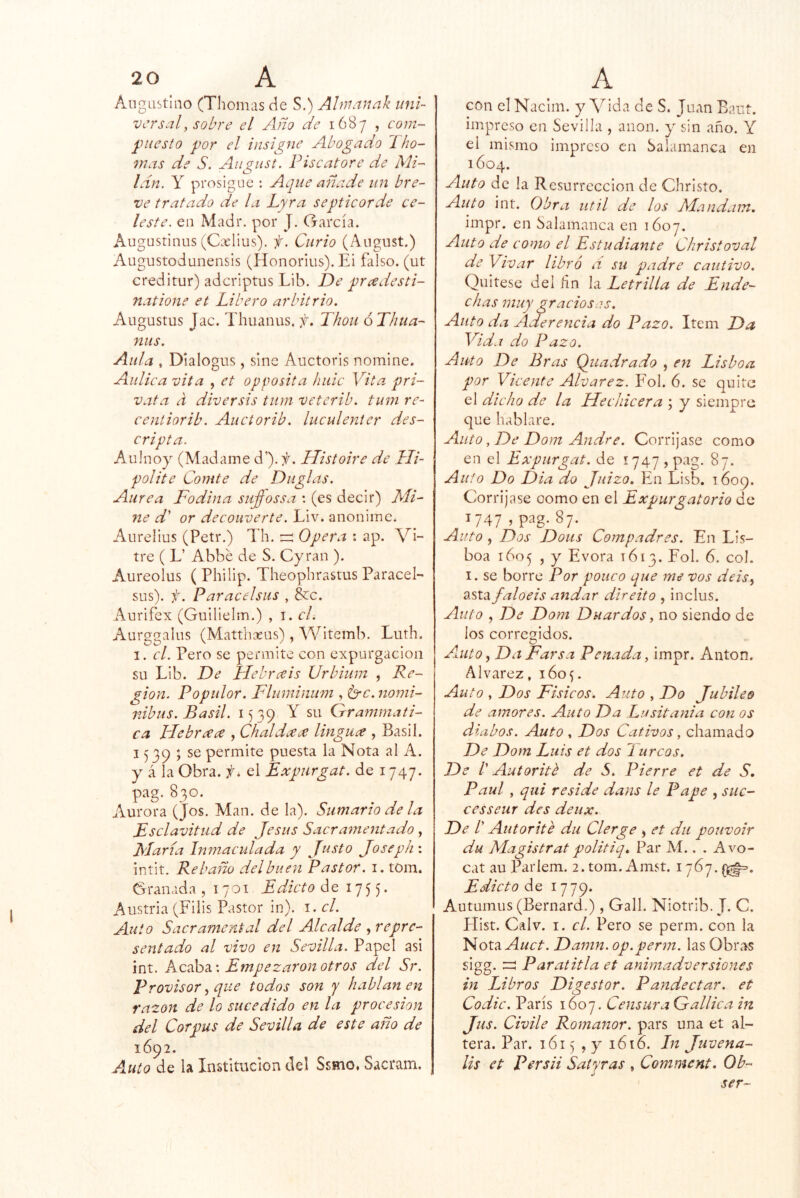 20 A
Augustino (Thomas de S.) Almanak uni-
versal, sobre el Año de 1687 , com-
puesto por el insigne Abogado Tho-
mas de S. August. Piscatore de Mi-
lán. Y prosigue : Aque añade un bre-
ve tratado de la Lyra septicorde ce-
leste. en Madr. por J. García.
Augustinus (Cælius). ℣. Curio (August.)
Augustodunensis (Honorius). Ei falso. (ut
creditur) adcriptus Lib. De prædesti-
natione et Libero arbitrio.
Augustus Jac. Thuanus. ℣. Thou ó Thua-
nus.
Aula , Dialogus , sine Auctoris nomine.
Aulica vita , et opposita huic Vita pri-
vata à diversis tum veterib. tum re-
centiorib. Auctorib. luculenter des-
cripta.
Aulnoy (Madame d'). ℣. Histoire de Hi-
polite Comte de Duglas.
Aurea Fodina suffossa : (es decir) Mi-
ne d' or decouverte. Liv. anonime.
Aurelius (Petr.) Th. = Opera : ap. Vi-
tre ( L' Abbè de S. Cyran ).
Aureolus ( Philip. Theophrastus Paracel-
sus). ℣. Paracelsus , &c.
Aurifex (Guilielm.) , 1. cl.
Aurggalus (Matthæus) , Witemb. Luth.
1. cl. Pero se permite con expurgacion
su Lib. De Hebræis Urbium , Re-
gion. Populor. Fluminum , &c. nomi-
nibus. Basil. 1539 Y su Grammati-
ca Hebrææ , Chaldææ linguæ , Basil.
1539 ; se permite puesta la Nota al A.
y á la Obra. ℣. el Expurgat. de 1747.
pag. 830.
Aurora (Jos. Man. de la). Sumario de la
Esclavitud de Jesus Sacramentado ,
María Inmaculada y Justo Joseph :
intit. Rebaño del buen Pastor. 1. tom.
Granada , 1701 Edicto de 1755.
Austria (Filis Pastor in). 1. cl.
Auto Sacramental del Alcalde , repre-
sentado al vivo en Sevilla. Papel asi
int. Acaba: Empezaron otros del Sr.
Provisor, que todos son y hablan en
razon de lo sucedido en la procesion
del Corpus de Sevilla de este año de
1692.
Auto de la Institucion del Ssmo. Sacram.
A
con el Nacim. y Vida de S. Juan Baut.
impreso en Sevilla , anon. y sin año. Y
el mismo impreso en Salamanca en
1604.
Auto de la Resurreccion de Christo.
Auto int. Obra util de los Mandam.
impr. en Salamanca en 1607.
Auto de como el Estudiante Christoval
de Vivar libró á su padre cautivo.
Quitese del fin la Letrilla de Ende-
chas muy graciosas.
Auto da Aderencia do Pazo. Item Da
Vida do Pazo.
Auto De Bras Quadrado , en Lisboa
por Vicente Alvarez. Fol. 6. se quite
el dicho de la Hechicera ; y siempre
que hablare.
Auto , De Dom Andre. Corrijase como
en el Expurgat. de 1747 , pag. 87.
Auto Do Dia do Juizo. En Lisb. 1609.
Corrijase como en el Expurgatorio de
1747 , pag. 87.
Auto , Dos Dous Compadres. En Lis-
boa 1605 , y Evora 1613. Fol. 6. col.
1. se borre Por pouco que me vos deis,
asta faloeis andar direito , inclus.
Auto , De Dom Duardos, no siendo de
los corregidos.
Auto, Da Farsa Penada, impr. Anton.
Alvarez, 1605.
Auto , Dos Fisicos. Auto , Do Jubileo
de amores. Auto Da Lusitania con os
diabos. Auto , Dos Cativos, chamado
De Dom Luis et dos Turcos.
De l' Autoritè de S. Pierre et de S.
Paul , qui reside dans le Pape , suc-
cesseur des deux.
De l' Autoritè du Clerge , et du pouvoir
du Magistrat politiq. Par M.. . Avo-
cat au Parlem. 2. tom. Amst. 1767. ☞.
Edicto de 1779.
Autumus (Bernard.) , Gall. Niotrib. J. C.
Hist. Calv. 1. cl. Pero se perm. con la
Nota Auct. Damn. op. perm. las Obras
sigg. = Paratitla et animadversiones
in Libros Digestor. Pandectar. et
Codic. París 1607. Censura Gallica in
Jus. Civile Romanor. pars una et al-
tera. Par. 1615 , y 1616. In Juvena-
lis et Persii Satyras , Comment. Ob-
ser-